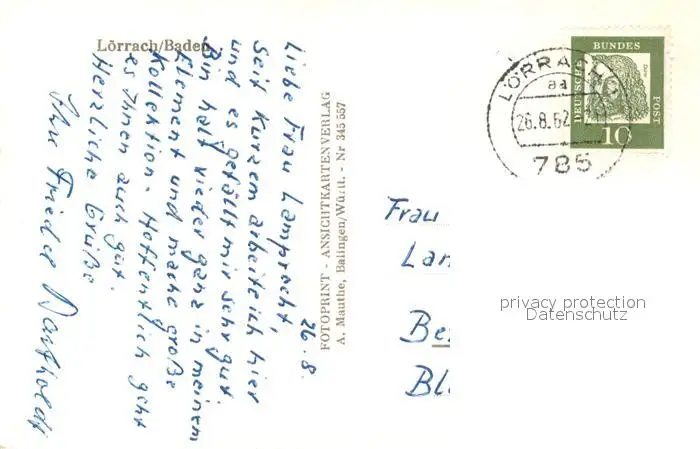 Lörrach/Baden
26.8.
Liebe Frau Lamprecht,
Seit kurzem arbeite ich hier
und es gefällt mir sehr gut.
Bin halt wieder ganz in meinem
Element und mache große
Kollektion. Hoffentlich geht
es Ihnen auch gut.
Herzliche Grüße
Ihr Frieder
FOTOPRINT - ANSICHTKARTENVERLAG
A. Mauthe, Balingen/Württ. - Nr 345 557
LÖRRACH
aa
26.8.62
785
DEUTSCHE
BUNDES
POST
10
Frau
Lan
Be
Bl
privacy protection
Datenschutz